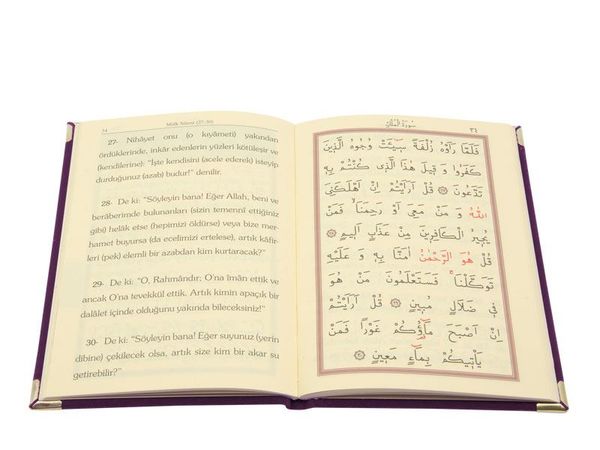 34
Mülk Sûresi (27-30)
27- Nihâyet onu (o kıyâmeti) yakından
ördüklerinde, inkâr edenlerin yüzleri kötüleşir ve
(kendilerine): “İşte kendisini (acele ederek) isteyip
durduğunuz (azab) budur!” denilir.
28- De ki: “Söyleyin bana! Eğer Allah, beni ve
berâberimde bulunanları (sizin temenni ettiğiniz
gibi) helâk etse (hepimizi öldürse) veya bize mer-
hamet buyursa (da ecelimizi ertelese), artık kâfir-
leri (pek) elemli bir azabdan kim kurtaracak?”
29- De ki: “O, Rahmândır; O'na îman ettik ve
ancak O'na tevekkül ettik. Artık kimin apaçık bir
dalâlet içinde olduğunu yakında bileceksiniz!”
30- De ki: “Söyleyin bana! Eğer suyunuz (yerin
dibine) çekilecek olsa, artık size kim bir akar su
getirebilir?”
سُورَةُ الْمُلْكِ
٣٤
فَلَمَّا رَاَوْهُ زُلْفَةً سٖٓيـَٔتْ وُجُوهُ الَّذٖينَ
كَفَرُوا وَ قٖيلَ هٰذَا الَّذٖى كُنْتُمْ بِهٖ
تَدَّعُونَ ۞ قُلْ اَرَاَيْتُمْ اِنْ اَهْلَكَنِىَ
اللّٰهُ وَ مَنْ مَعِىَ اَوْ رَحِمَنَا ۙ فَمَنْ
يُجٖيرُ الْكَافِرٖينَ مِنْ عَذَابٍ اَلٖيمٍ ۞
قُلْ هُوَ الرَّحْمٰنُ اٰمَنَّا بِهٖ وَ عَلَيْهِ
تَوَكَّلْنَا ۚ فَسَتَعْلَمُونَ مَنْ هُوَ
فٖى ضَلَالٍ مُبٖينٍ ۞ قُلْ اَرَاَيْتُمْ
اِنْ اَصْبَحَ مَٓاؤُكُمْ غَوْرًا فَمَنْ
يَاْتٖيكُمْ بِمَٓاءٍ مَعٖينٍ ۞